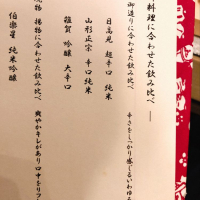 料理に合わせた飲み比べ ―
御造りに合わせた飲み比べ
日高見 超辛口 純米
辛さをしっかり感じる いわゆ
山形正宗 辛口純米
雑賀 吟醸 大辛口
物 揚物に合わせた飲み比べ
爽やかキレがあり 口中をリフ
伯楽星 純米吟醸